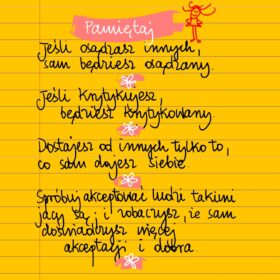 Pamiętaj
Jeśli osądzasz innych,
sam będziesz osądzany.
Jeśli krytykujesz,
będziesz krytykowany.
Dostajesz od innych tylko to,
co sam dajesz siebie.
Spróbuj akceptować ludzi takimi
jacy są i zobaczysz, że sam
doświadczysz więcej
akceptacji i dobra.